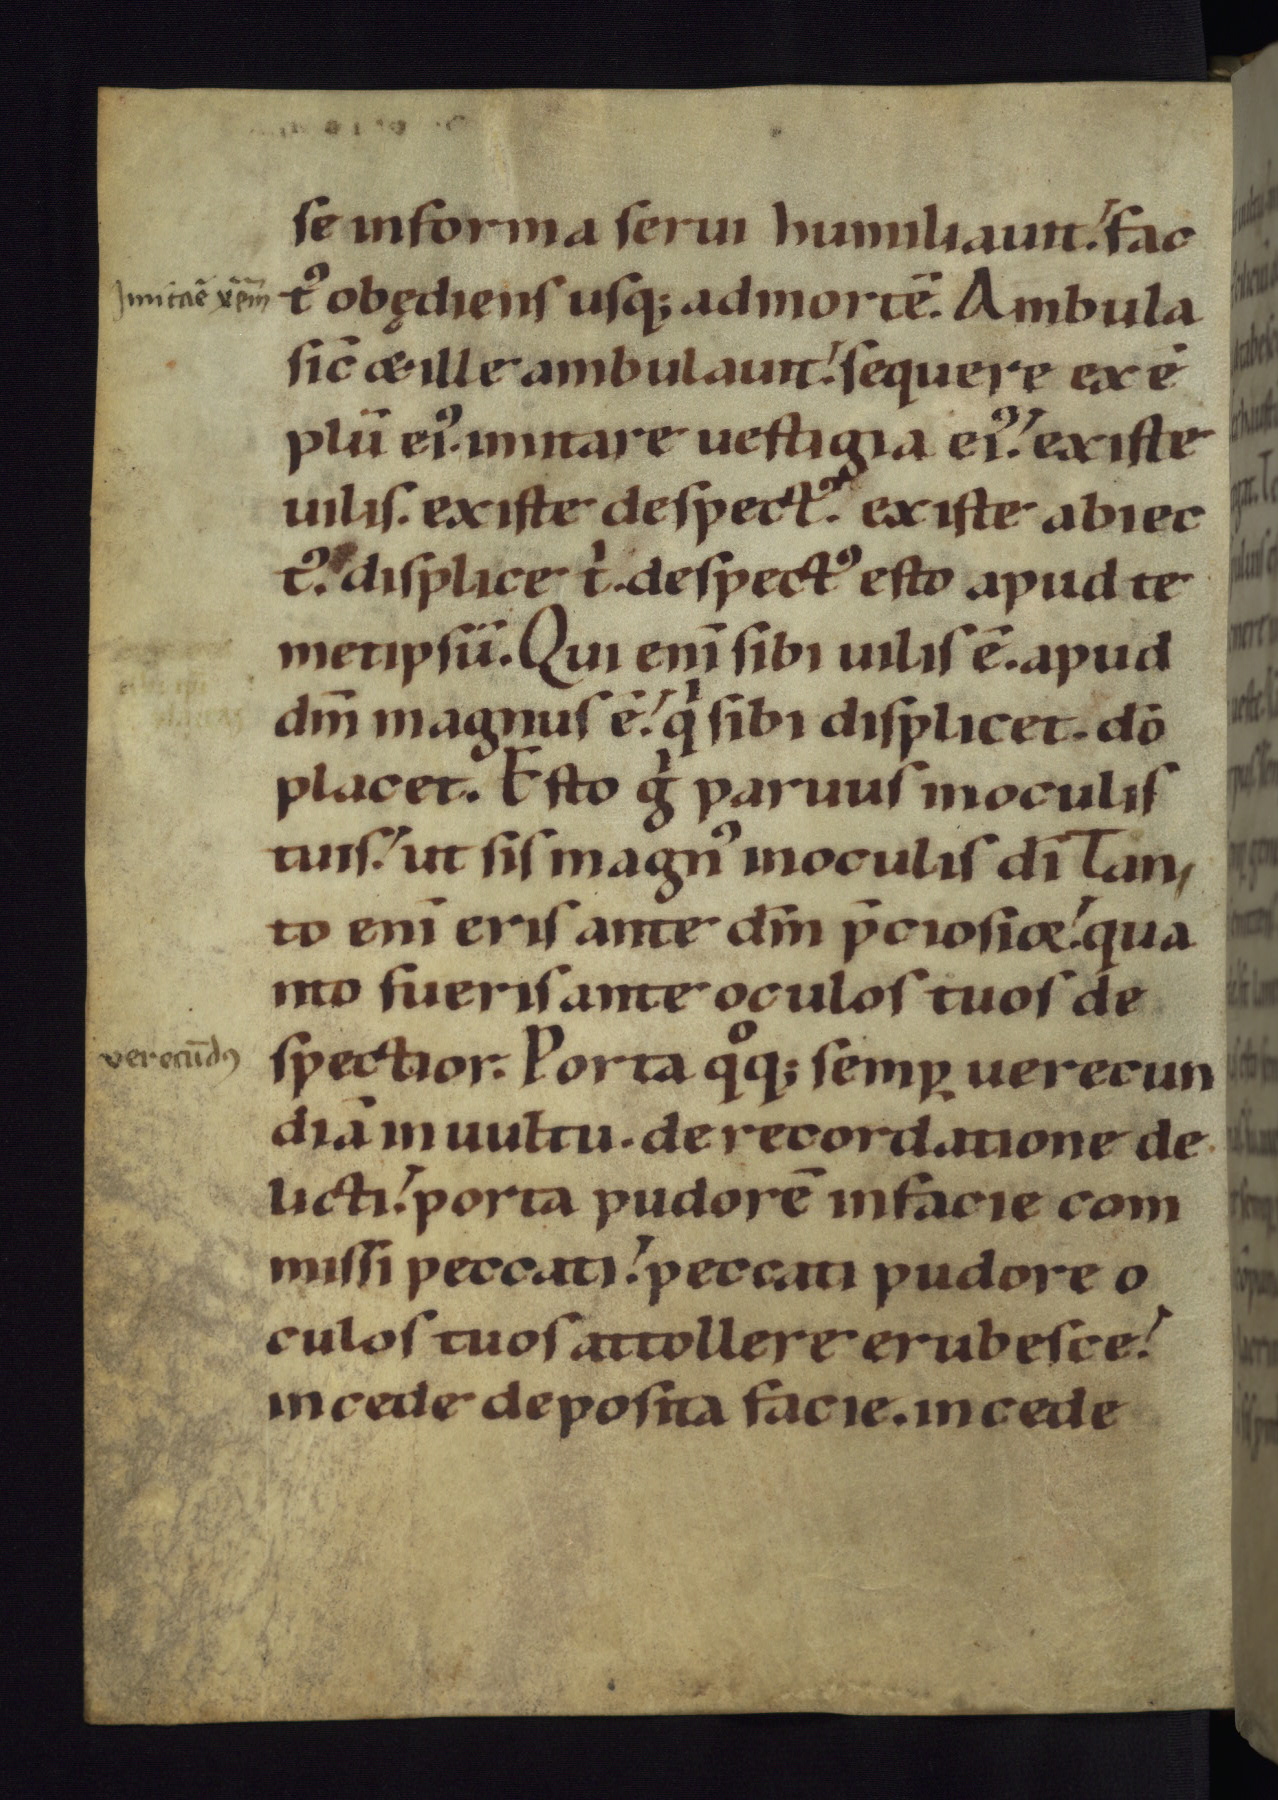 se informa serui humiliauit. fac
Imitaē xp̄m
t᷒ obędiens usq; admortē. Ambula
sic̄ & ille ambulauit. sequere exē
plū ei᷒. imitare uestigia ei᷒. existe
uilis. existe despect᷒. existe abiec
t᷒. displice t̍. despect᷒ esto apud te
metipsū. Qui enī sibi uilis ē. apud
dm̄ magnus ē. q̍ sibi displicet. dō
placet. Esto g̍ paruus inoculis
tuis. ut sis magn᷒ inoculis dī Tan
to enī eris ante dm̄ p̄ciosior. qua
nto fueris ante oculos tuos de
verecūd᷒
spectior. Porta qͦq; semp̱ uerecun
diā inuultu. de recordatione de
licti. porta pudorē infacie com
missi peccati. peccati pudore o
culos tuos attollere erubesce.
incede deposita facie. incede